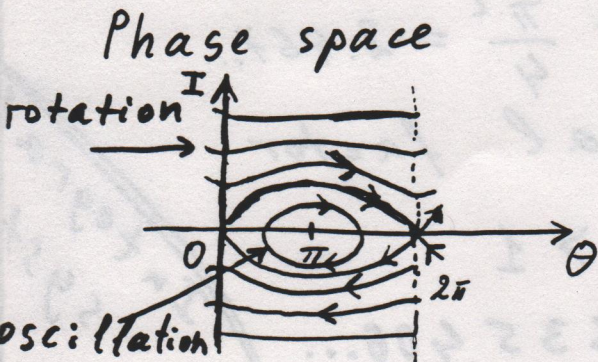 Phase space
I
rotation
0
π
θ
2π
oscillation